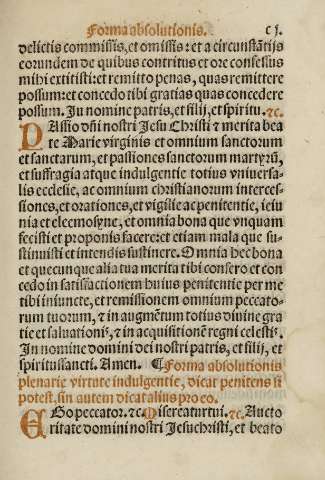 Forma absolutionis. c j.
delictis commissis, et omissis: et a circunstãtijs
eorundem de quibus contritus et ore confessus
mihi extitisti: et remitto penas, quas remittere
possum: et concedo tibi gratias quas concedere
possum. In nomine patris, et filij, et spiritu. ⁊c.
PAssio dñi nostri Jesu Christi ⁊ merita bea
te Marie virginis et omnium sanctorum
et sanctarum, et passiones sanctorum martyrũ,
et suffragia atque indulgentie totius vniuersa-
lis ecclesie, ac omnium christianorum interces-
siones, et orationes, et vigilie ac penitentie, ieiu
nia et eleemosyne, et omnia bona que vnquam
fecisti et proponis facere: et etiam mala que su-
stinuisti et intendis sustinere. Omnia hec bona
et quecunque alia tua merita tibi confero et con
cedo in satisfactionem huius penitentie per me
tibi iniuncte, et remissionem omnium peccato-
rum tuorum, ⁊ in augmẽtum totius diuine gra
tie et saluationis, ⁊ in acquisitionẽ regni celestis.
In nomine domini dei nostri patris, et filij, et
spiritussancti. Amen. ¶Forma absolutionis
plenarie virtute indulgentie, dicat penitens si
potest, sin autem dicat alius pro eo.
EGo peccator. ⁊c. Misereatur tui. ⁊c. Aucto
ritate domini nostri Jesuchristi, et beato